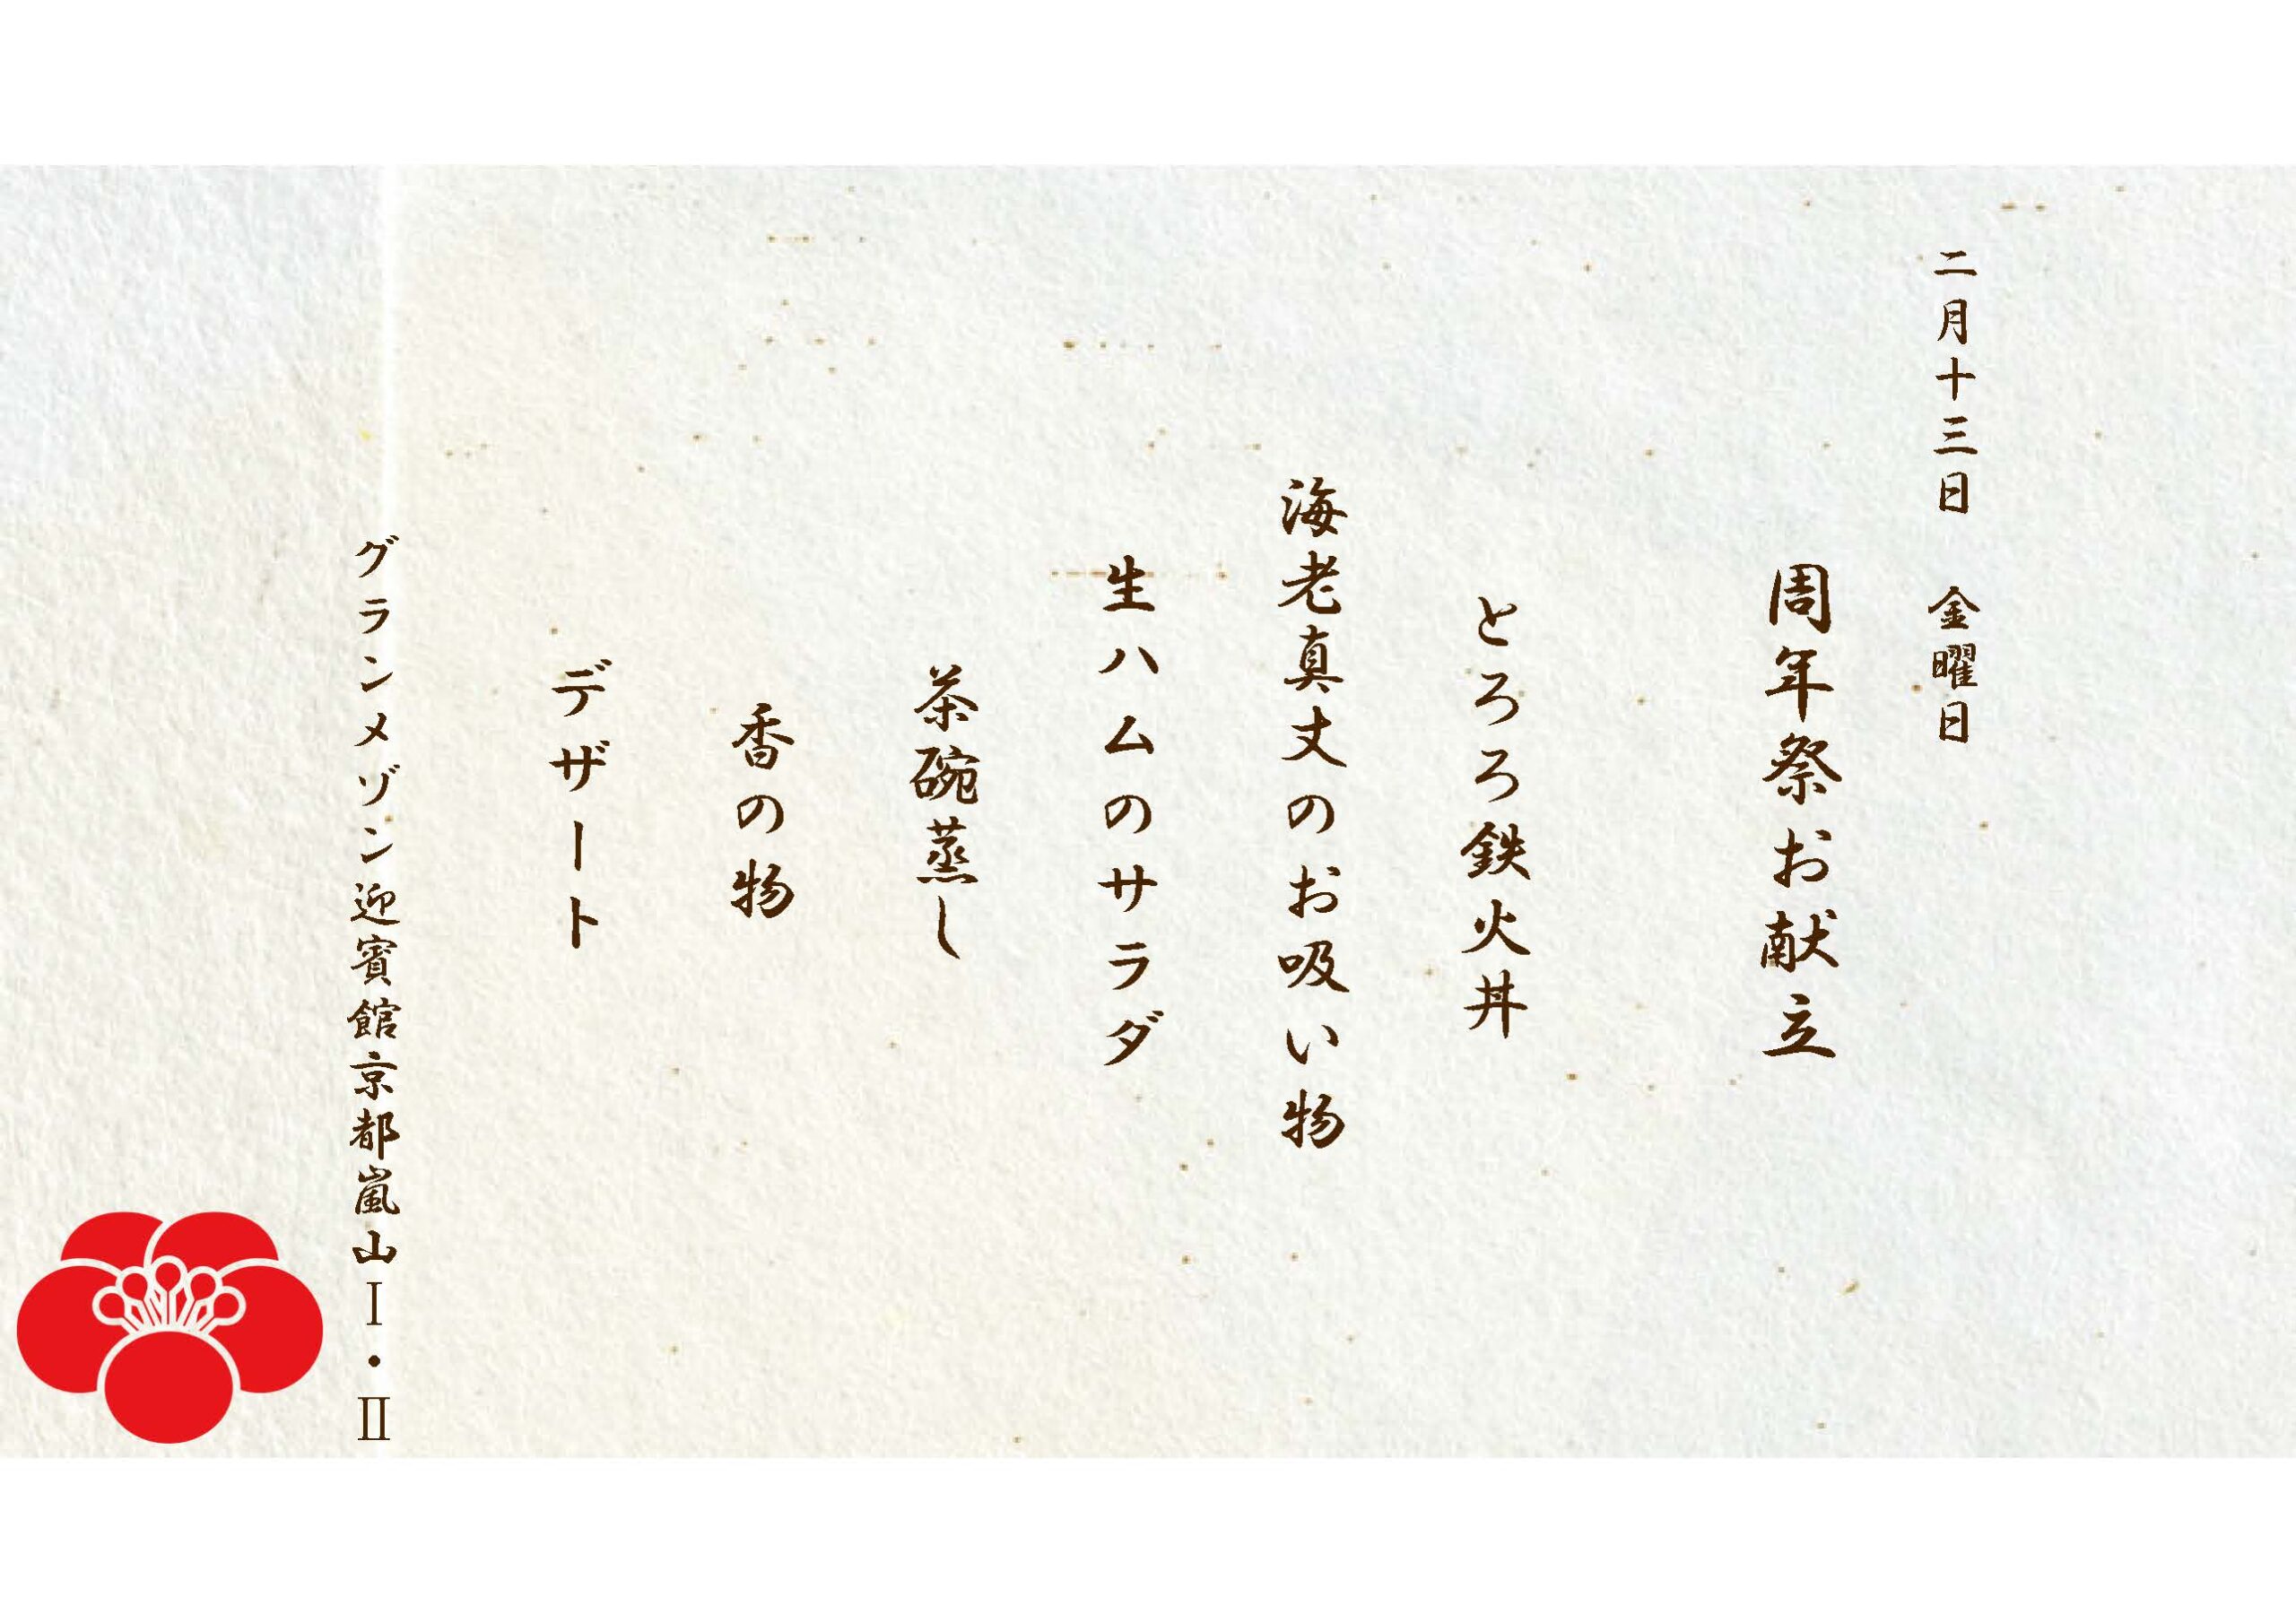 二月十三日　金曜日
周年祭お献立
とろろ鉄火丼
海老真丈のお吸い物
生ハムのサラダ
茶碗蒸し
香の物
デザート
グランメゾン迎賓館京都嵐山Ⅰ・Ⅱ